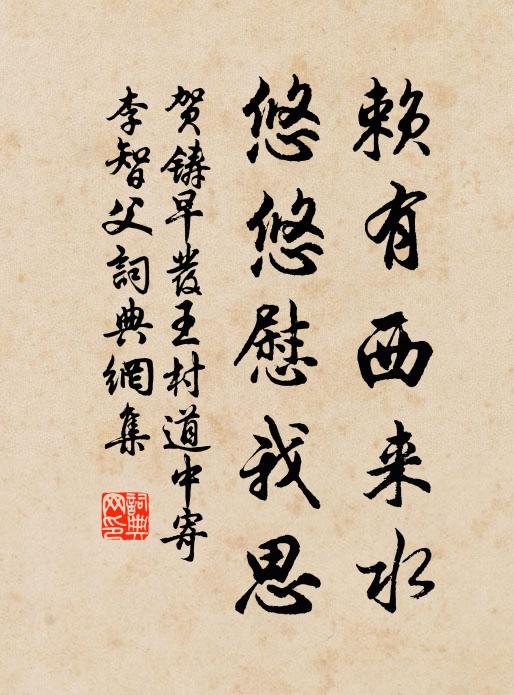 賴有西来水
悠悠慰我思
贺鑄早發王村道中寄
李智父詞典網集
詞典
网印